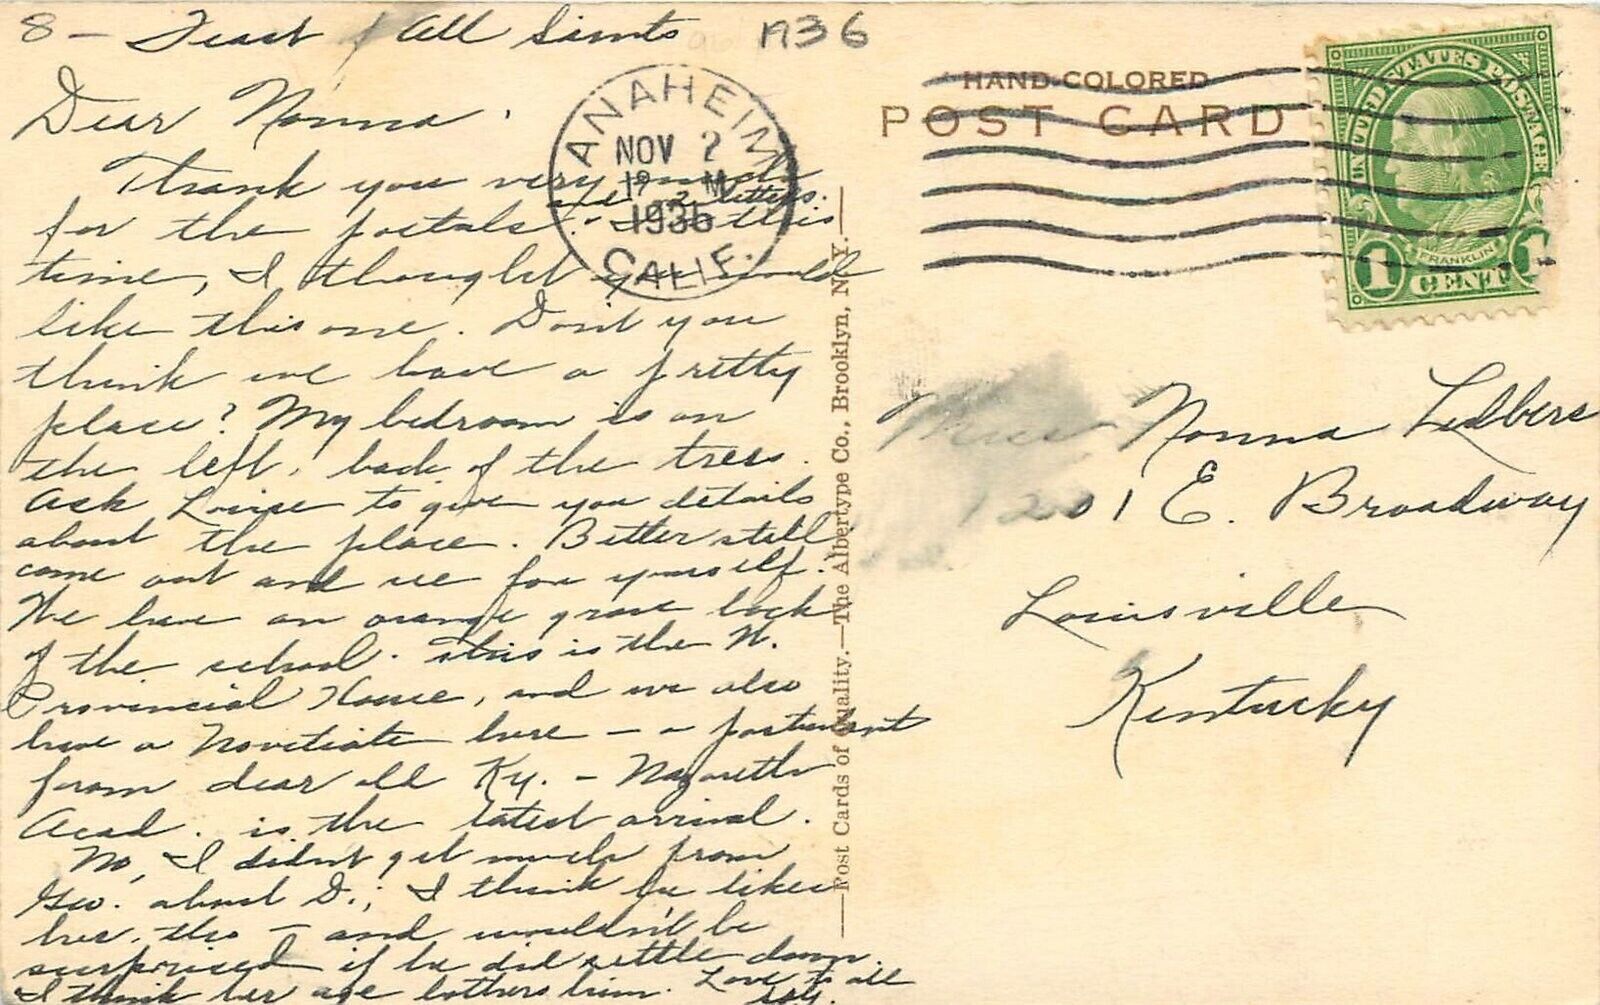 8 - Feast of All Saints 1936
Dear Nonna,
Thank you very much
and 2 letters.
for the postals - so this
time, I thought you would
like this one. Don't you
think we have a pretty
place? My bedroom is on
the left, back of the trees.
Ask Louise to give you details
about the place. Better still
come out and see for yourself.
We have an orange grove back
of the school. This is the N.
Provincial House, and we also
have a Novitiate here - a postulant
from dear old Ky. - Nazareth
Acad. is the latest arrival.
No, I didn't get much from
Geo. about D.; I think he likes
her, tho - and wouldn't be
surprised if he did settle down.
I think her age bothers him. Love to all
ANAHEIM
NOV 2
12 M
1936
CALIF.
HAND-COLORED
POST CARD
UNITED STATES POSTAGE
FRANKLIN
1 CENT 1
Post Cards of Quality.—The Albertype Co., Brooklyn, N. Y.
Miss Nonna Lubbers
1201 E. Broadway
Louisville
Kentucky